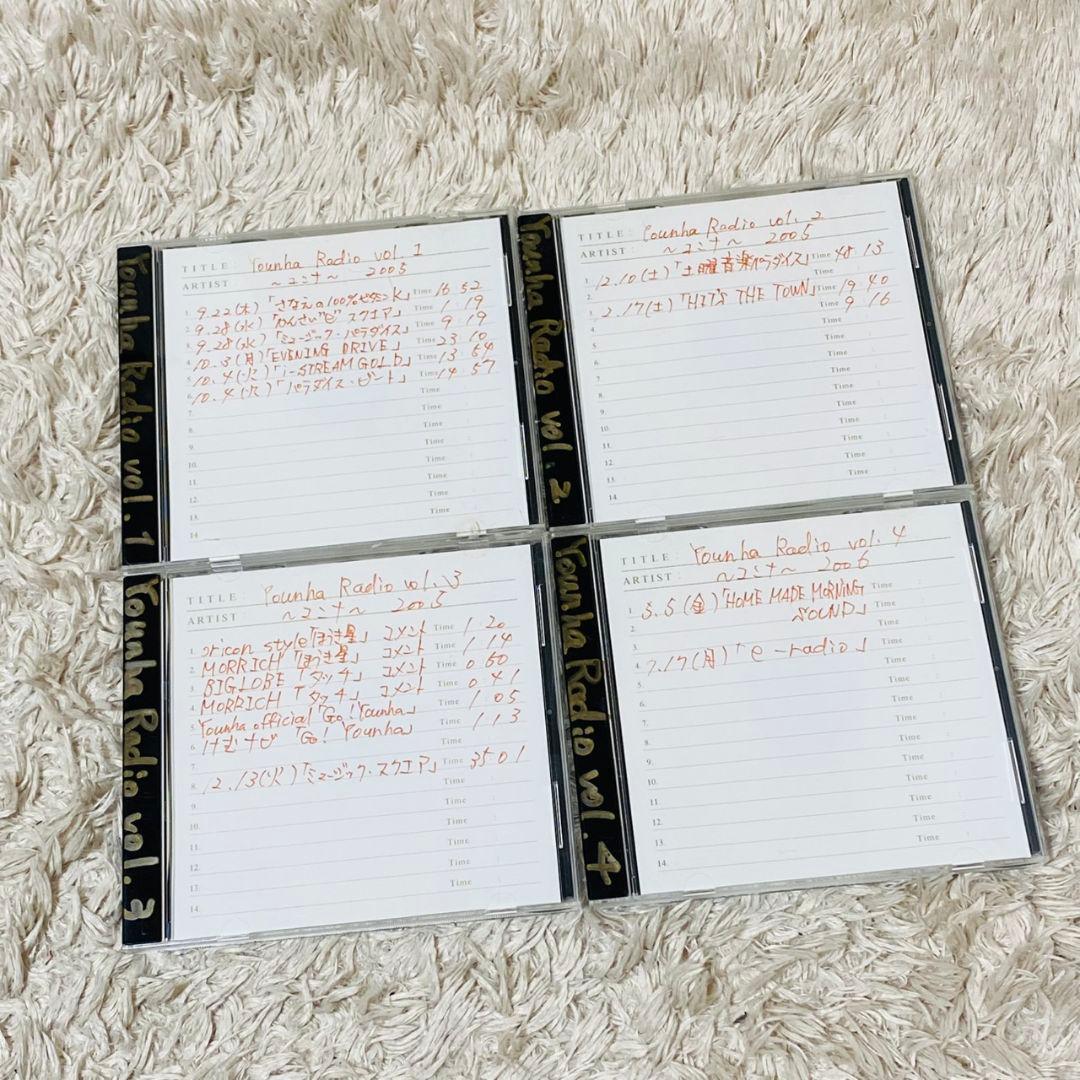 Younha Radio vol. 1
TITLE : Younha Radio vol. 1
ARTIST : ～ユンナ～ 2005
1. 9.22(木)「さなえの100%ビタミンK」 Time 16 52
2. 9.28(水)「かんさい"ピ"スクエア」 Time 1 19
3. 9.28(水)「ミュージック・パラダイス」 Time 9 19
4. 10.3(月)「EVENING DRIVE」 Time 23 10
5. 10.4(火)「i-STREAM GOLD」 Time 13 54
6. 10.4(火)「パラダイス・ビート」 Time 14 57
7. Time
8. Time
9. Time
10. Time
11. Time
12. Time
13. Time
14. Time
Younha Radio vol. 2
TITLE : Younha Radio vol. 2
ARTIST : ～ユンナ～ 2005
1. 12.10(土)「土曜音楽パラダイス」 Time 48 13
2. 12.17(土)「HIT'S THE TOWN」 Time 19 40
3. Time 9 16
4. Time
5. Time
6. Time
7. Time
8. Time
9. Time
10. Time
11. Time
12. Time
13. Time
14. Time
Younha Radio vol. 3
TITLE : Younha Radio vol. 3
ARTIST : ～ユンナ～ 2005
1. oricon style「ほうき星」 コメント Time 1 20
2. MORRICH「ほうき星」 コメント Time 1 14
3. BIGLOBE「タッチ」 コメント Time 0 50
4. MORRICH「タッチ」 コメント Time 0 41
5. Younha official「Go! Younha」 Time 1 05
6. 「Go! Younha」 Time 1 13
7. Time
8. 12.13(火)「ミュージック・スクエア」 Time 35 01
9. Time
10. Time
11. Time
12. Time
13. Time
14. Time
Younha Radio vol. 4
TITLE : Younha Radio vol. 4
ARTIST : ～ユンナ～ 2006
1. 5.5(金)「HOME MADE MORNING Time
2. SOUND」 Time
3. Time
4. 7.17(月)「e-radio」 Time
5. Time
6. Time
7. Time
8. Time
9. Time
10. Time
11. Time
12. Time
13. Time
14.